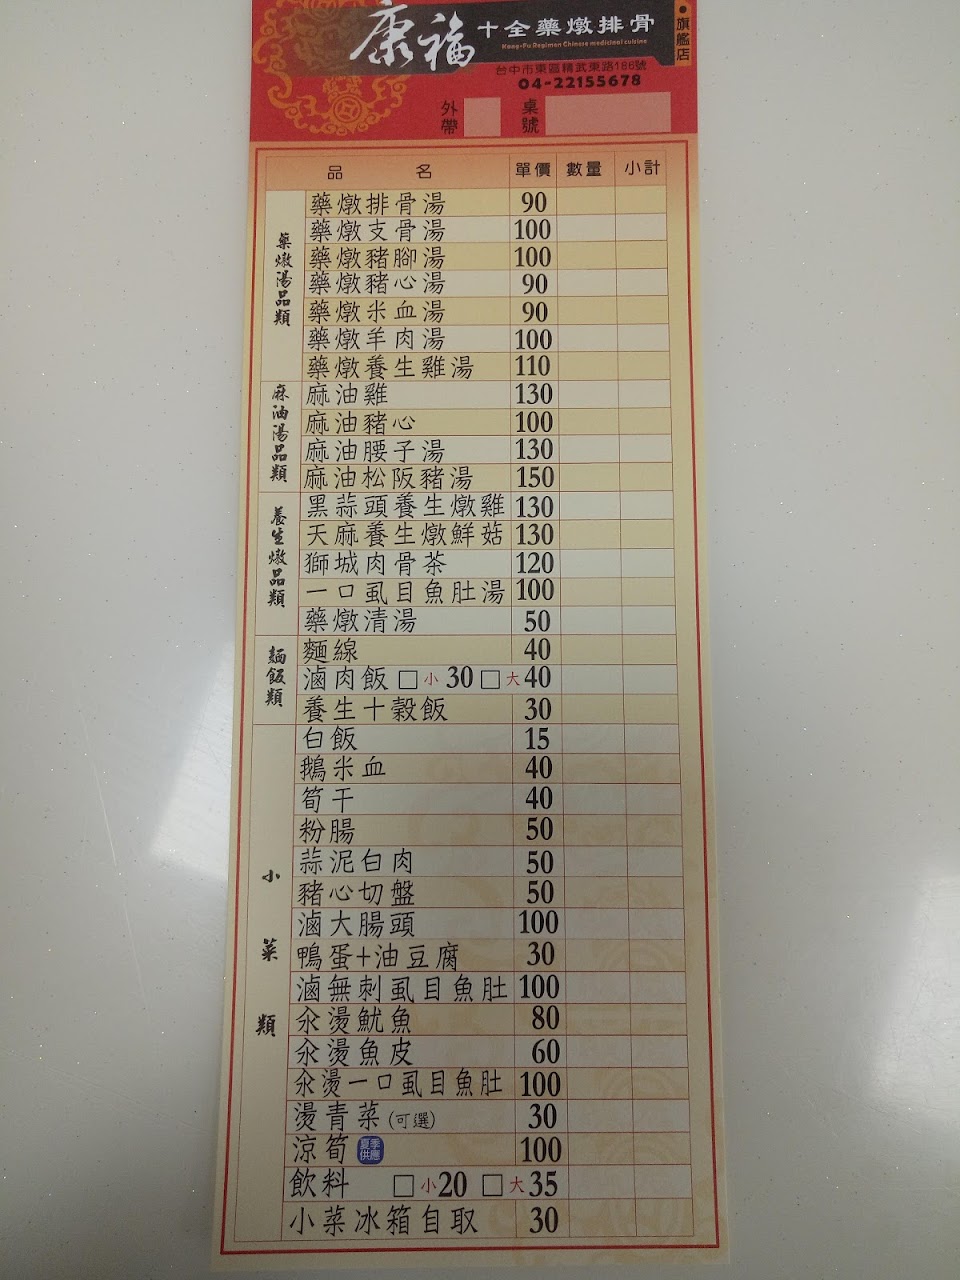 康福十全藥燉排骨
Kang-Fu Regimen Chinese medicinal cuisine
●旗艦店
台中市東區精武東路186號
04-22155678
外帶 桌號
品名 單價 數量 小計
藥燉湯品類
藥燉排骨湯 90
藥燉支骨湯 100
藥燉豬腳湯 100
藥燉豬心湯 90
藥燉米血湯 90
藥燉羊肉湯 100
藥燉養生雞湯 110
麻油湯品類
麻油雞 130
麻油豬心 100
麻油腰子湯 130
麻油松阪豬湯 150
養生燉品類
黑蒜頭養生燉雞 130
天麻養生燉鮮菇 130
獅城肉骨茶 120
一口虱目魚肚湯 100
藥燉清湯 50
麵飯類
麵線 40
滷肉飯 □小 30 □大 40
養生十穀飯 30
小菜類
白飯 15
鵝米血 40
筍干 40
粉腸 50
蒜泥白肉 50
豬心切盤 50
滷大腸頭 100
鴨蛋+油豆腐 30
滷無刺虱目魚肚 100
汆燙魷魚 80
汆燙魚皮 60
汆燙一口虱目魚肚 100
燙青菜(可選) 30
涼筍 夏季供應 100
飲料 □小 20 □大 35
小菜冰箱自取 30